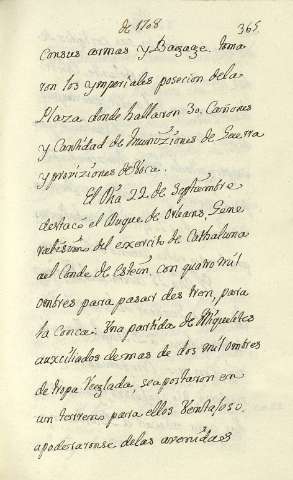 de 1708
365
Consus armas y Bagaze. toma
ron los ymperiales posecion dela
Plaza donde hallaron 30. Cañones
y Cantidad de munuziones de Guerra
y proviziones de voca.
El Dia 22 de Septiembre
destacó el Duque de Orleans, Gene
ralisimo del exercito de Cathaluna
ael Conde de Estein, con quatro mil
ombres para pasar des tren, para
la Conca; Una partida de Miqueletes
auxciliados de mas de dos mil ombres
de tropa Reglada, se apostaron en
un terreno para ellos Bentajoso,
apoderaronse delas avenidas